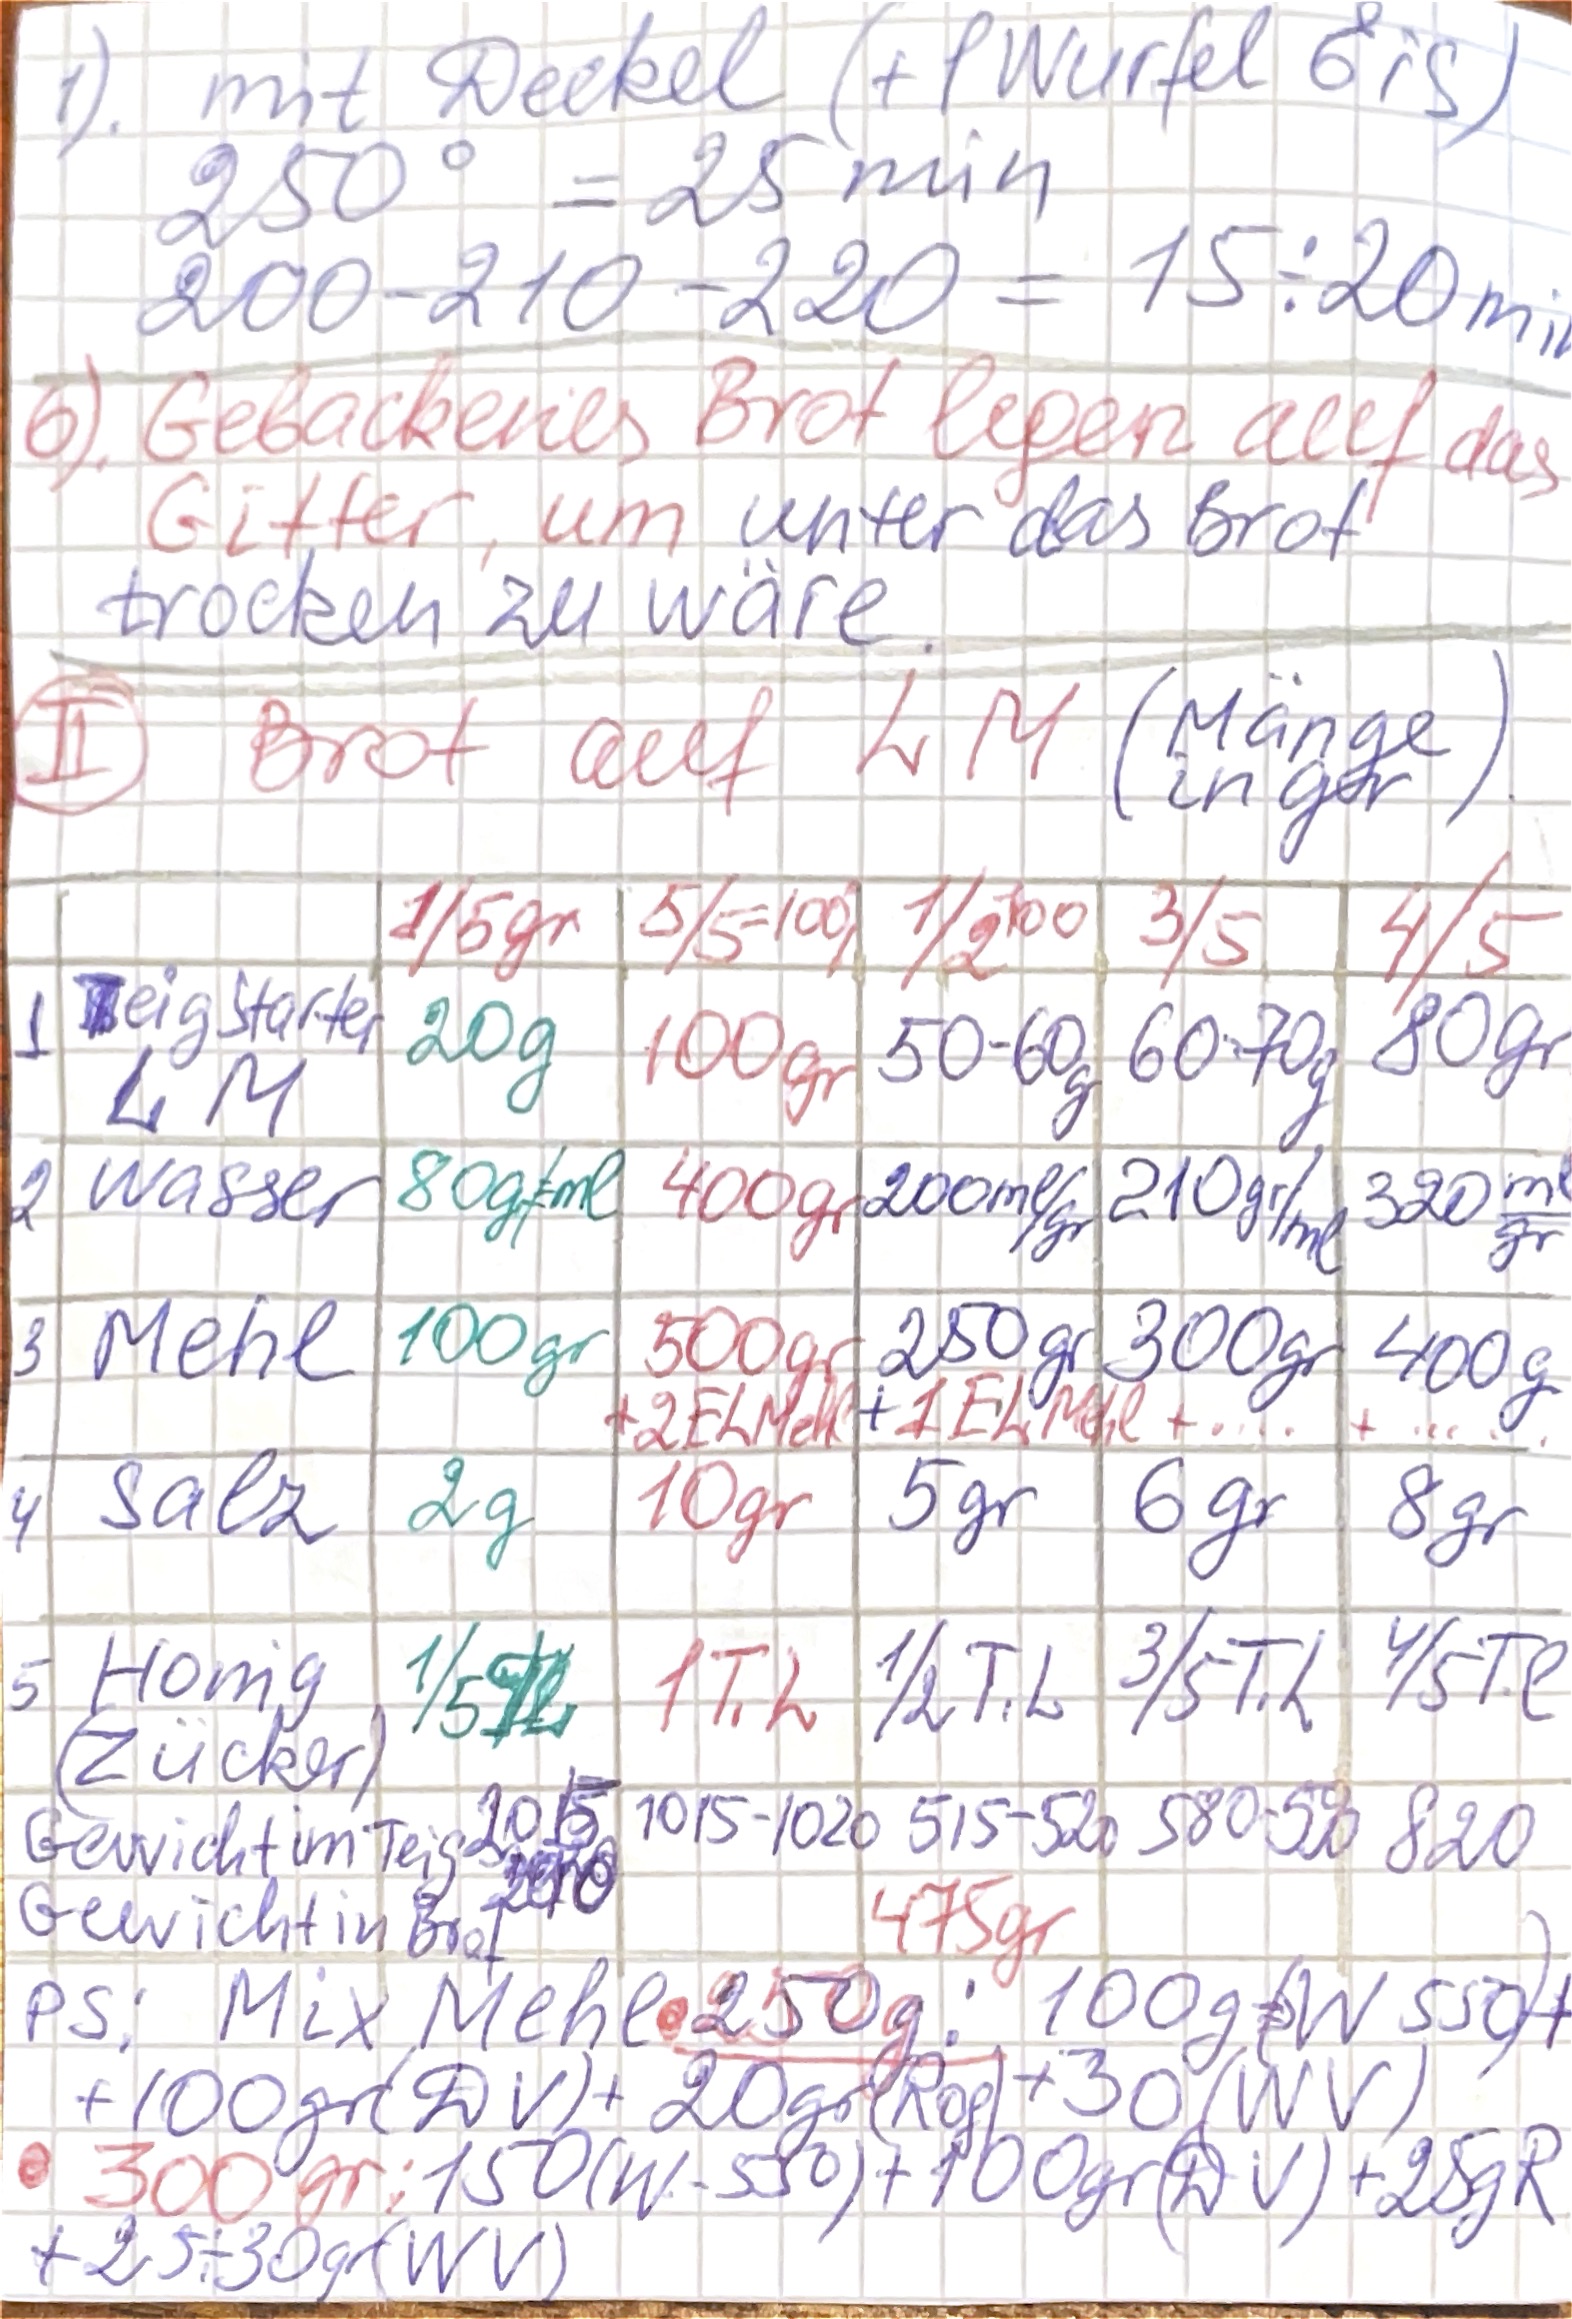 1). mit Deckel (+1 Würfel Eis)
250° = 25 min
200-210-220 = 15÷20 min
6). Gebackenes Brot legen auf das
Gitter, um unter das Brot
trocken zu wäre.
II Brot auf LM (Mänge in gr).
1/5gr 5/5=100g 1/2 100 3/5 4/5
1 Teig Starter LM 20g 100gr 50-60g 60-70g 80gr
2 Wasser 80g/ml 400gr 200ml/gr 210gr/ml 320 ml/gr
3 Mehl 100gr 500gr 250gr 300gr 400g
+2ELMehl +1ELMehl +.... +.....
4 Salz 2g 10gr 5gr 6gr 8gr
5 Honig (Zücker) 1/5TL 1T.L 1/2T.L 3/5T.L 4/5T.l
Gewicht im Teig 1015-1020 515-520 580-590 820
Gewicht in Brot 475gr
PS: Mix Mehl • 250g: 100g (W 550)+
+100gr(DV)+20gr(Rog)+30(WV)
• 300gr: 150(W-550)+100gr(DV)+25gR
+25÷30gr(WV)